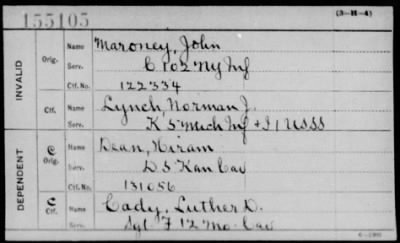 155105
(3-H-4)
INVALID Orig. Name Maroney, John
Serv. C 102 Ny Inf
Ctf. No. 122334
Ctf. Name Lynch, Norman J.
Serv. K 5 Mich Inf + I 1 USSS
DEPENDENT C Orig. Name Dean, Hiram
Serv. D 5 Kan Cav
Ctf. No. 131056
C Ctf. Name Cady, Luther D.
Serv. Sgt F 12 Mo. Cav